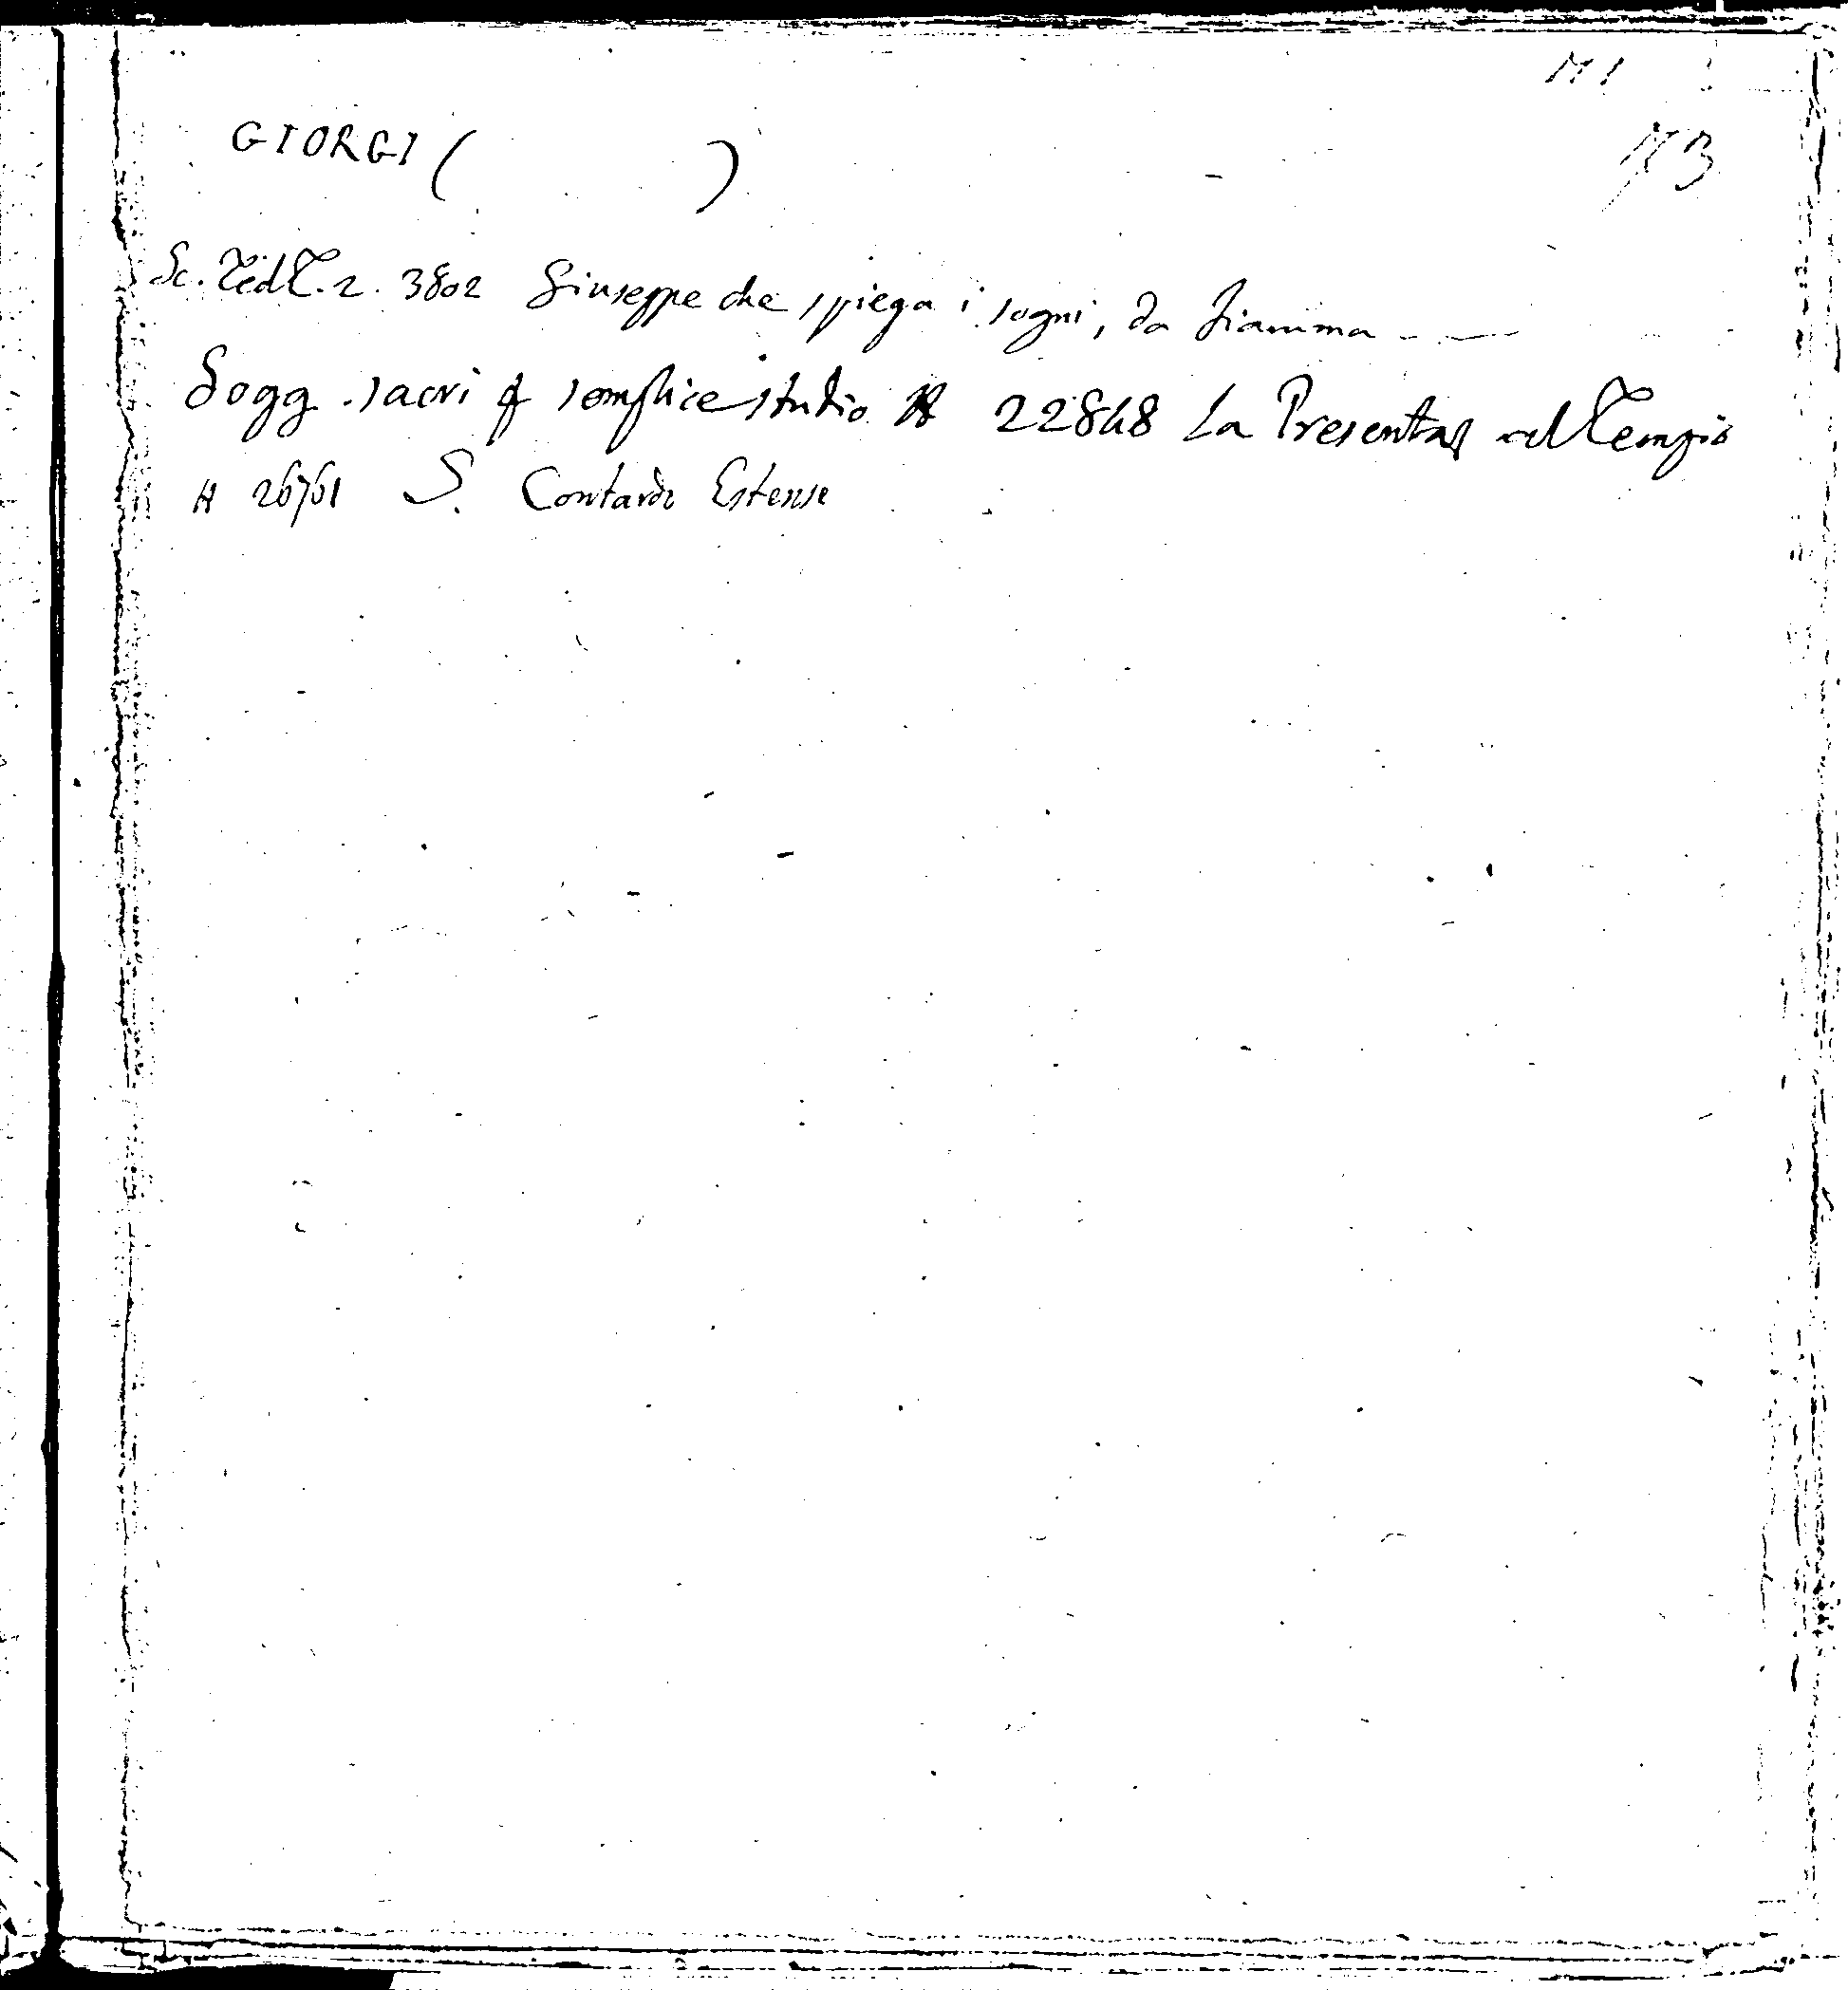 GIORGI ( )
173
Sc. Ted T. 2. 3802 Giuseppe che spiega i sogni, da Fiamma
Sogg. sacri semplice studio A 22848 La Presentaz nel Tempio
A 26761 S. Contardo Estense